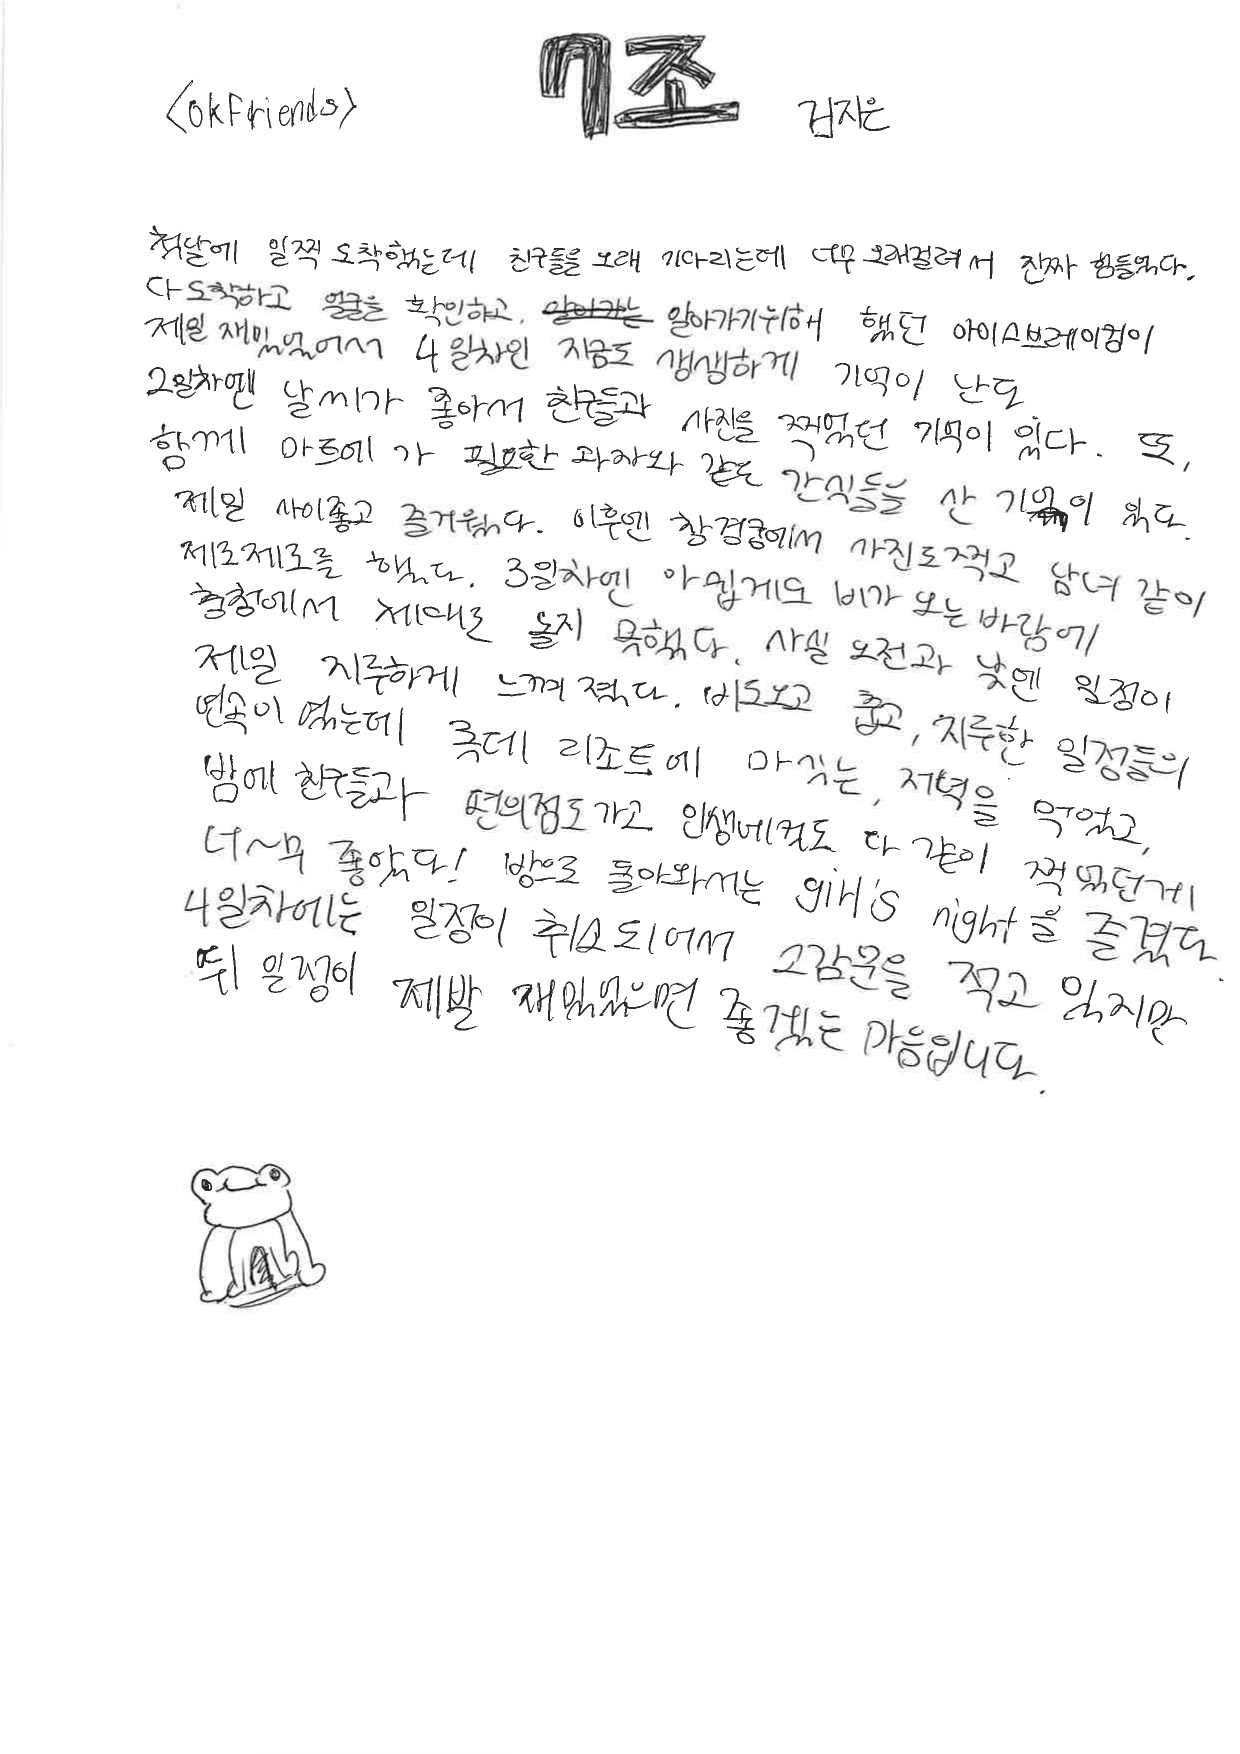 7조
<okFriends> 김지은
첫날에 일찍 도착했는데 친구들을 오래 기다리는데 너무 오래걸려서 진짜 힘들었다.
다 도착하고 얼굴을 확인하고, 알아가는 알아가기위해 했던 아이스브레이킹이
제일 재밌었어서 4일차인 지금도 생생하게 기억이 난다
2일차엔 날씨가 좋아서 친구들과 사진을 찍었던 기억이 있다. 또,
함께 마트에 가 필요한 과자와 같은 간식들을 산 기억이 있다.
제일 사이좋고 즐거웠다. 이후엔 창경궁에서 사진도찍고 남녀 같이
제로제로를 했다. 3일차엔 아쉽게도 비가 오는바람에
충청에서 제대로 놀지 못했다. 사실 오전과 낮엔 일정이
제일 지루하게 느껴졌다. 비도오고 춥고, 지루한 일정들의
연속이 였는데 롯데 리조트에 마싰는, 저녁을 먹었고,
밤에 친구들과 편의점도가고 인생네컷도 다 같이 찍었던게
너~무 좋았다! 방으로 돌아와서는 girl's night을 즐겼다.
4일차에는 일정이 취소되어서 소감문을 적고 있지만
뒤 일정이 제발 재밌었으면 좋겠는 마음입니다.